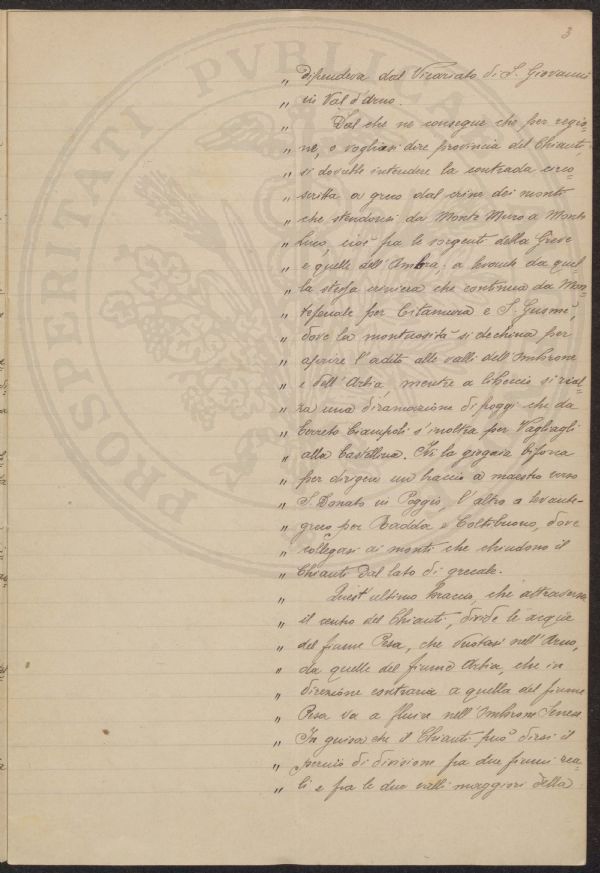 3
PROSPERITATI PVBLICAE
" dipendeva dal Vicariato di S. Giovanni
" in Val d'Arno.
" Dal che ne consegue che per regio=
" ne, o vogliasi dire provincia del Chianti
" si dovrebbe intendere la contrada circo=
" scritta a greco dal crine dei monti
" che stendonsi da Monte Muro a Monte
" Luco, cioè fra le sorgenti della Greve
" e quelle dell'Ambra; a levante da quel=
" la stessa criniera che continua da Mon=
" tefenale per Cetamura e S. Gusmè,
" dove la montuosità si dechina per
" aprire l'adito alle valli dell'Ombrone
" e dell'Arbia, mentre a libeccio si rial=
" za una diramazione di poggi che da
" Cerreto Ciampoli s'inoltra per Vagliagli
" alla Castellina. Ivi la giogaia biforca
" per dirigere un braccio a maestro verso
" S. Donato in Poggio, l'altro a levante-
" greco per Radda e Coltibuono, dove
" collegasi ai monti che chiudono il
" Chianti dal lato di grecale.
" Quest'ultimo braccio, che attraversa
" il centro del Chianti, divide le acque
" del fiume Pesa, che vuotasi nell'Arno,
" da quelle del fiume Arbia, che in
" direzione contraria a quella del fiume
" Pesa va a fluire nell'Ombrone Senese
" In guisa che il Chianti può dirsi il
" pernio di divisione fra due fiumi rea=
" li e fra le due valli maggiori della